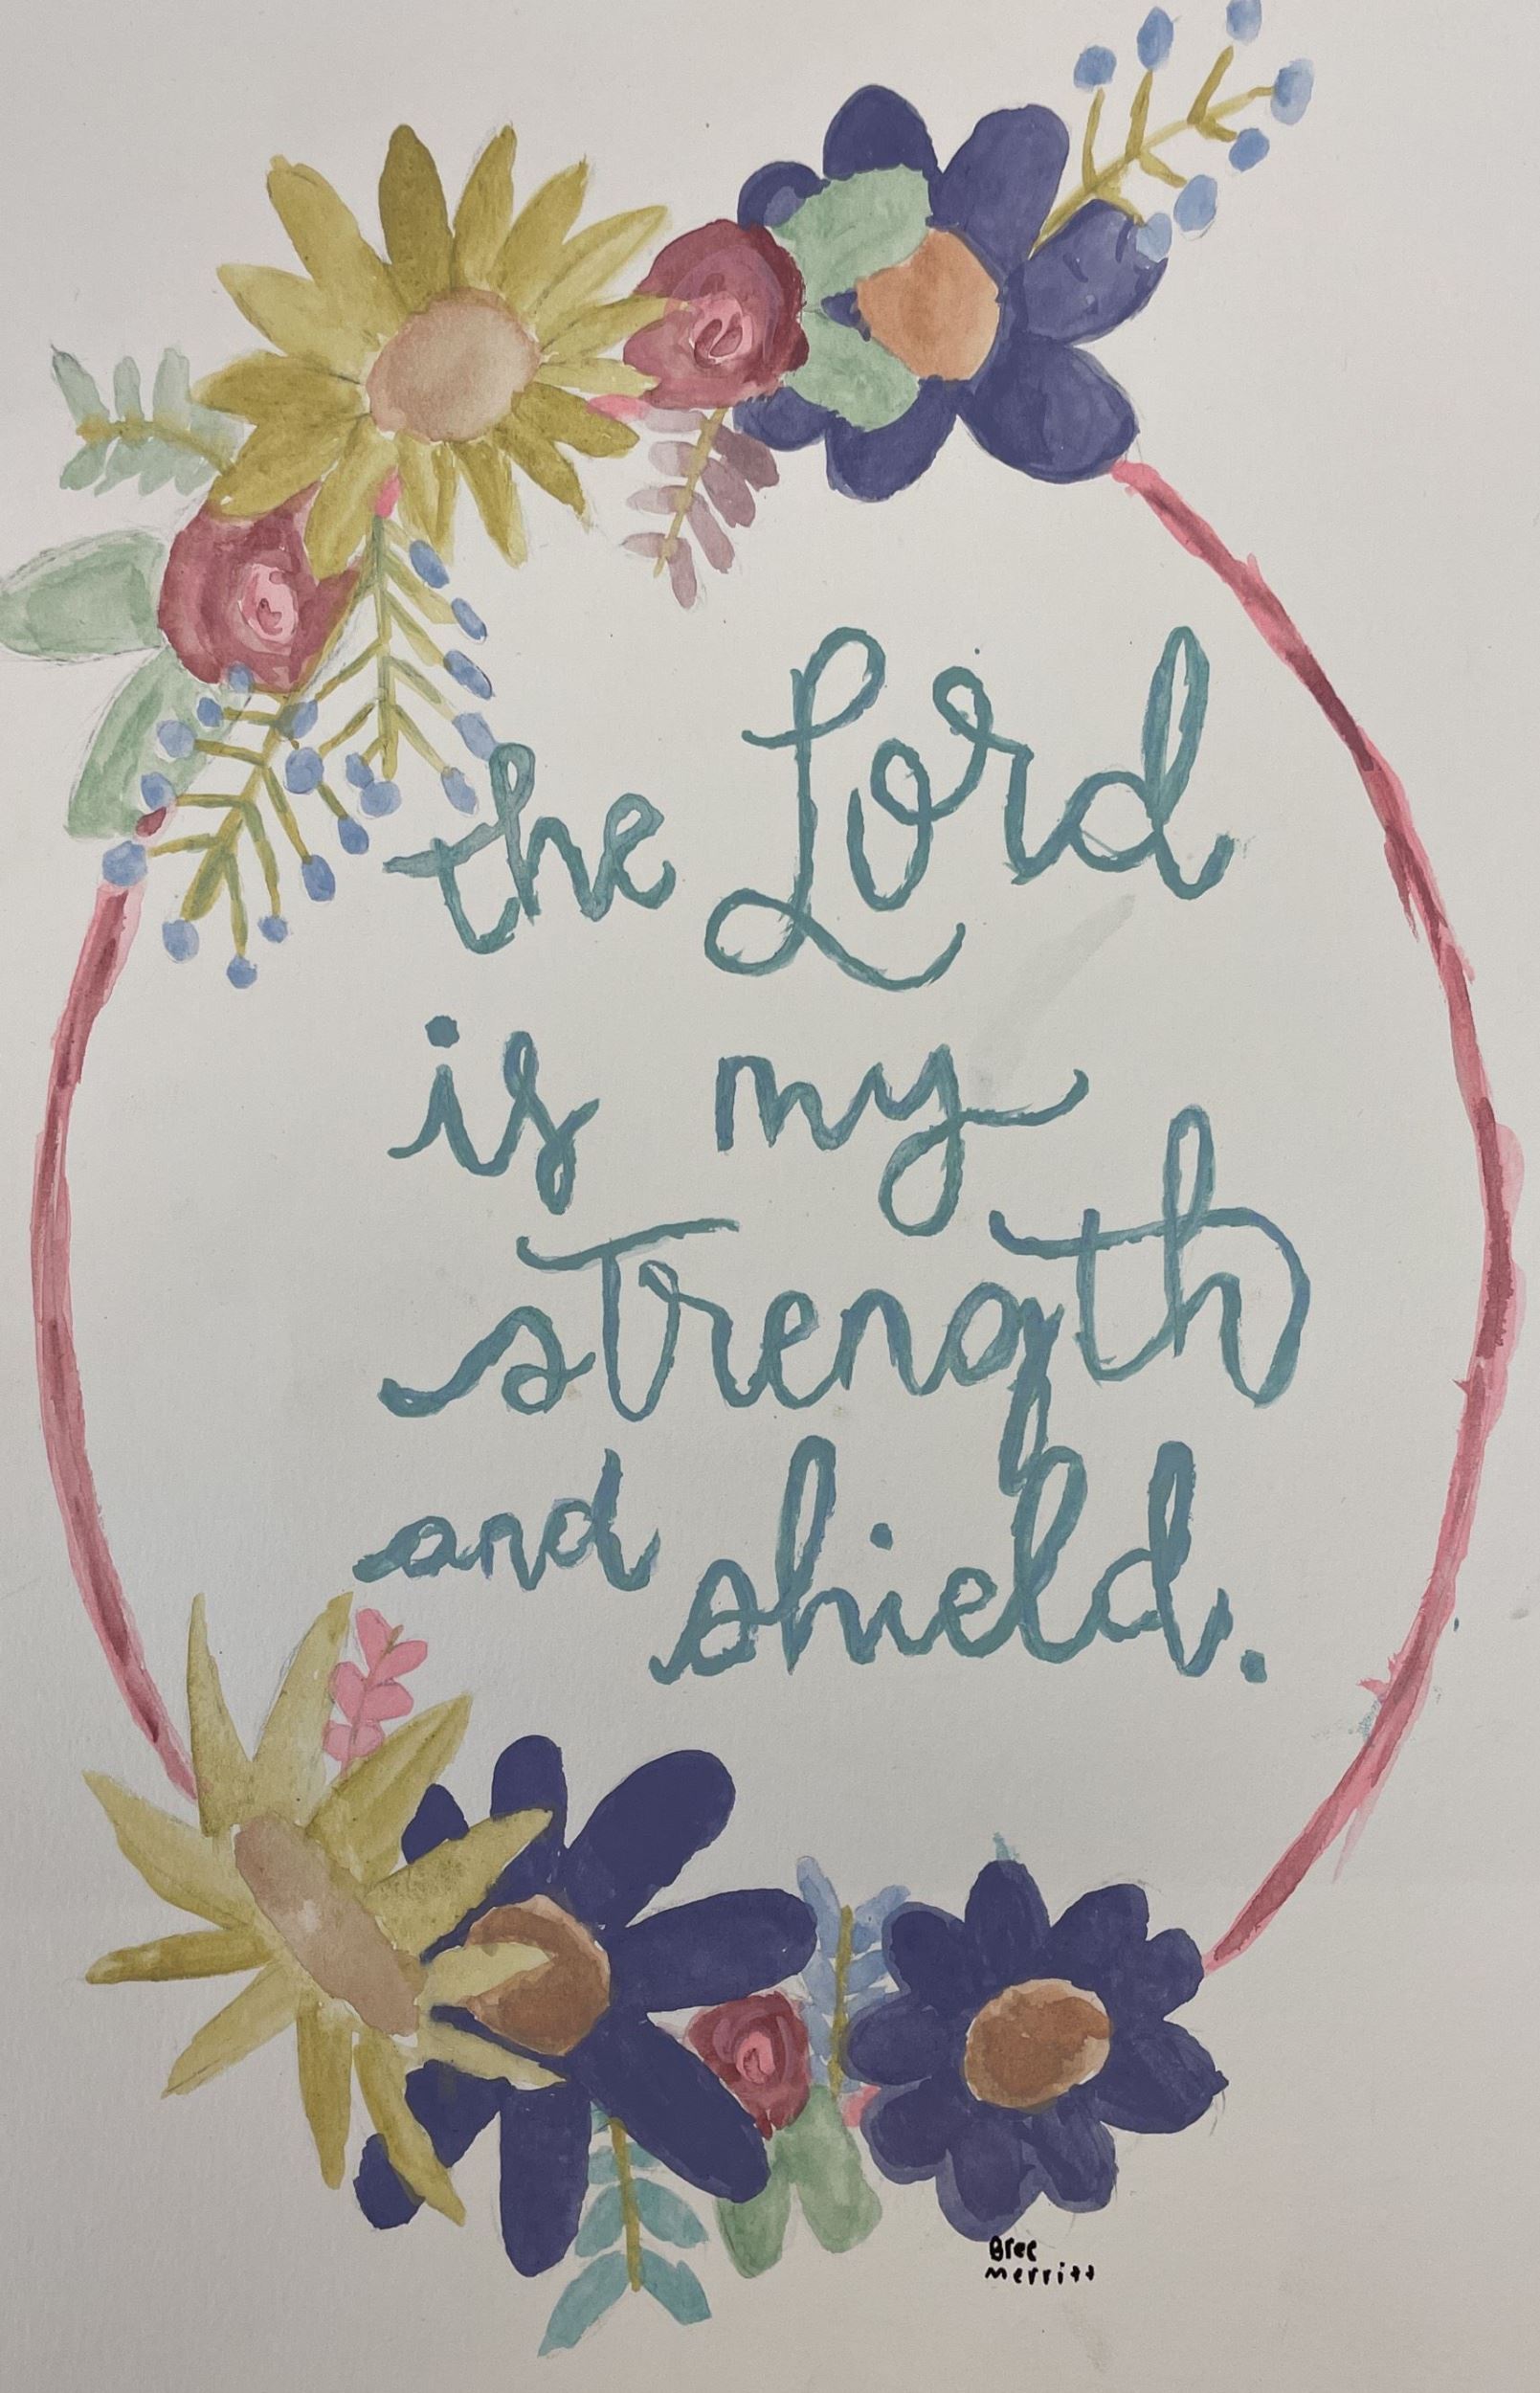 the Lord
is my
strength
and shield.
Bree
Merritt